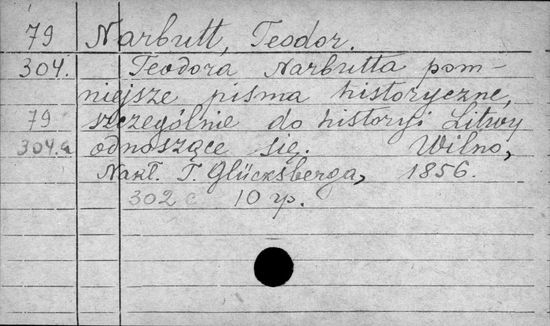 79 Narbutt, Teodor.
304. Teodora Narbutta pom-
niejsze pisma historyczne,
79 szczególnie do historyi Litwy
304.a odnoszące się. Wilno,
Nakł. T. Glücksberga, 1856.
302 c 10 rp.